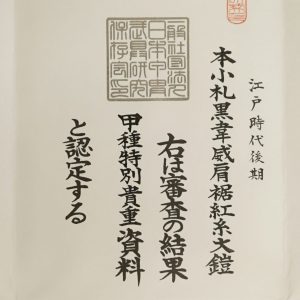 江戸時代後期
本小札黒韋威肩裾紅糸大鎧
右は審査の結果
甲種特別貴重資料
と認定する
一般社団法人
日本甲冑
武具研究
保存会